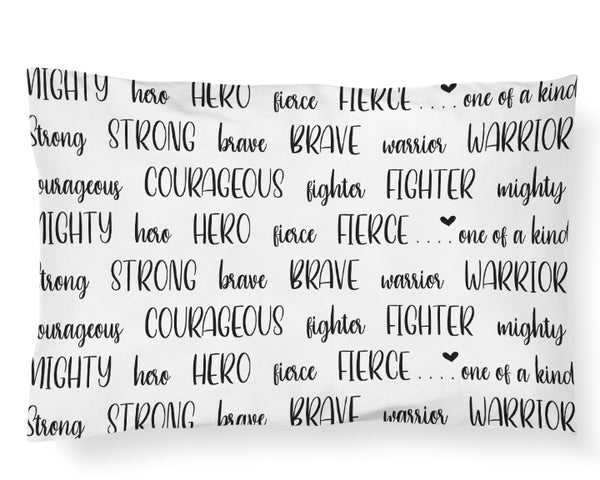 MIGHTY hero HERO fierce FIERCE....♥one of a kind
Strong STRONG brave BRAVE warrior WARRIOR
courageous COURAGEOUS fighter FIGHTER mighty
MIGHTY hero HERO fierce FIERCE....♥one of a kind
Strong STRONG brave BRAVE warrior WARRIOR
courageous COURAGEOUS fighter FIGHTER mighty
MIGHTY hero HERO fierce FIERCE....♥one of a kind
Strong STRONG brave BRAVE warrior WARRIOR